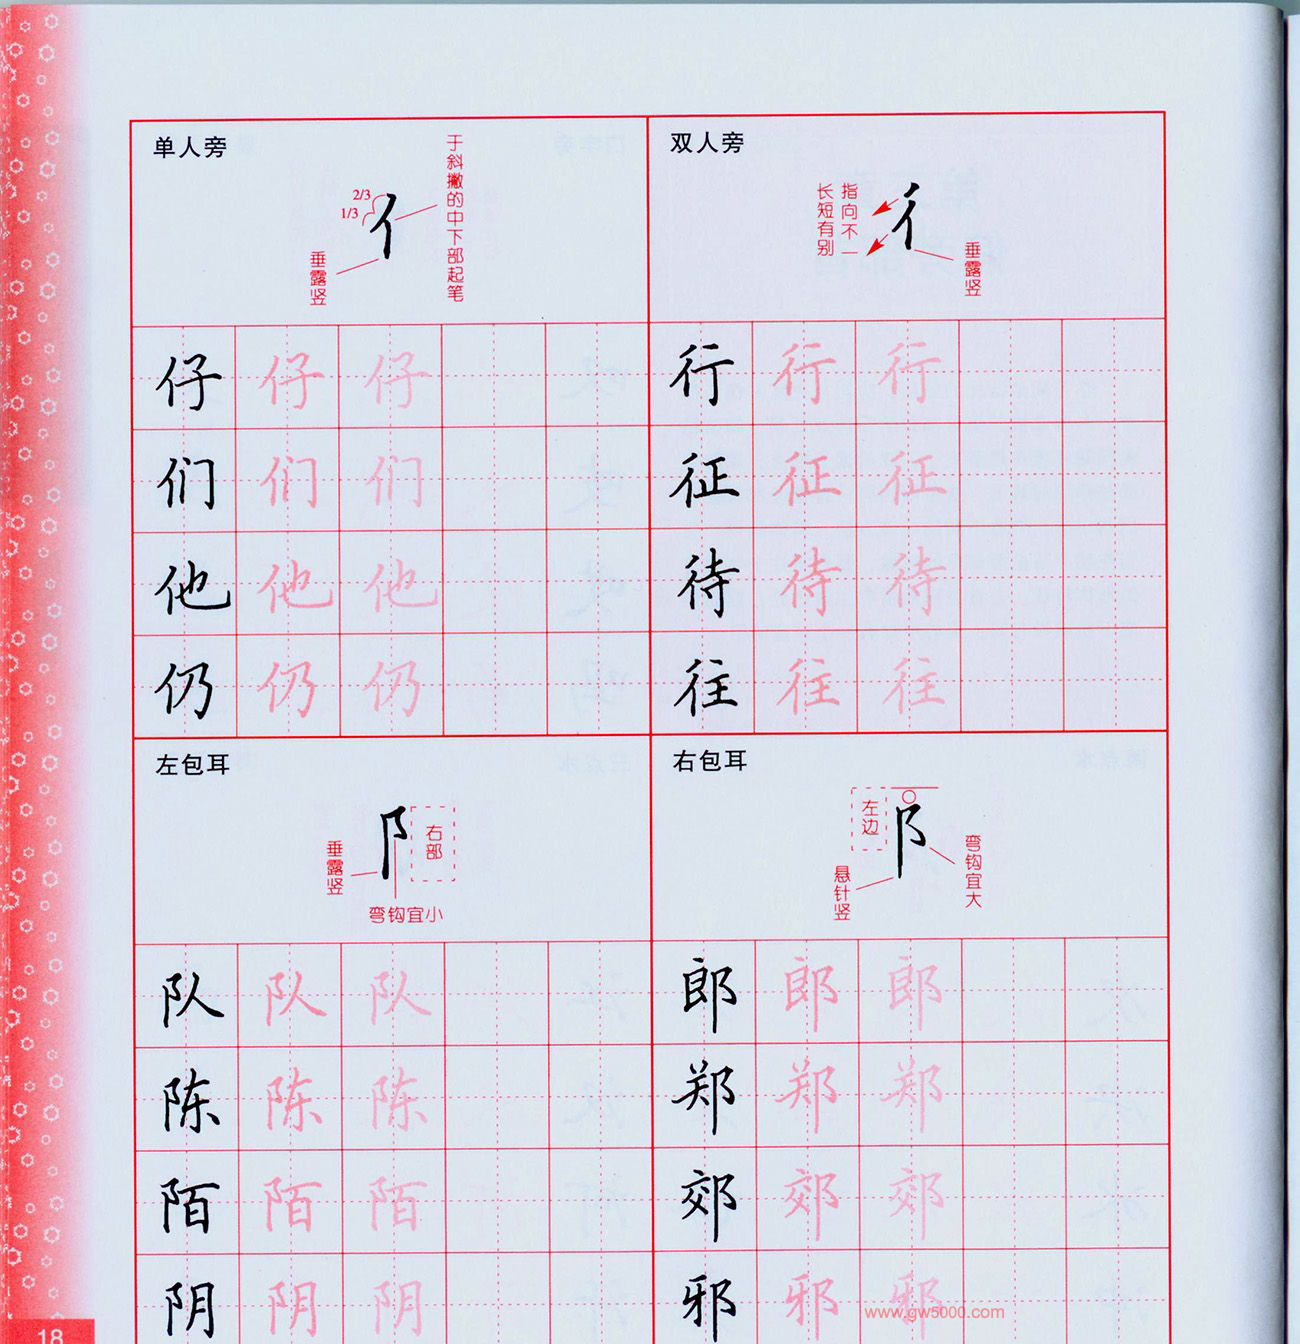 单人旁
2/3
1/3
于斜撇的中下部起笔
垂露竖
双人旁
指向不一
长短有别
垂露竖
仔 仔 仔
们 们 们
他 他 他
仍 仍 仍
行 行 行
征 征 征
待 待 待
往 往 往
左包耳
右部
垂露竖
弯钩宜小
右包耳
左边
弯钩宜大
悬针竖
队 队 队
陈 陈 陈
陌 陌 陌
阴 阴 阴
郎 郎 郎
郑 郑 郑
郊 郊 郊
邪 邪 邪
www.gw5000.com
18